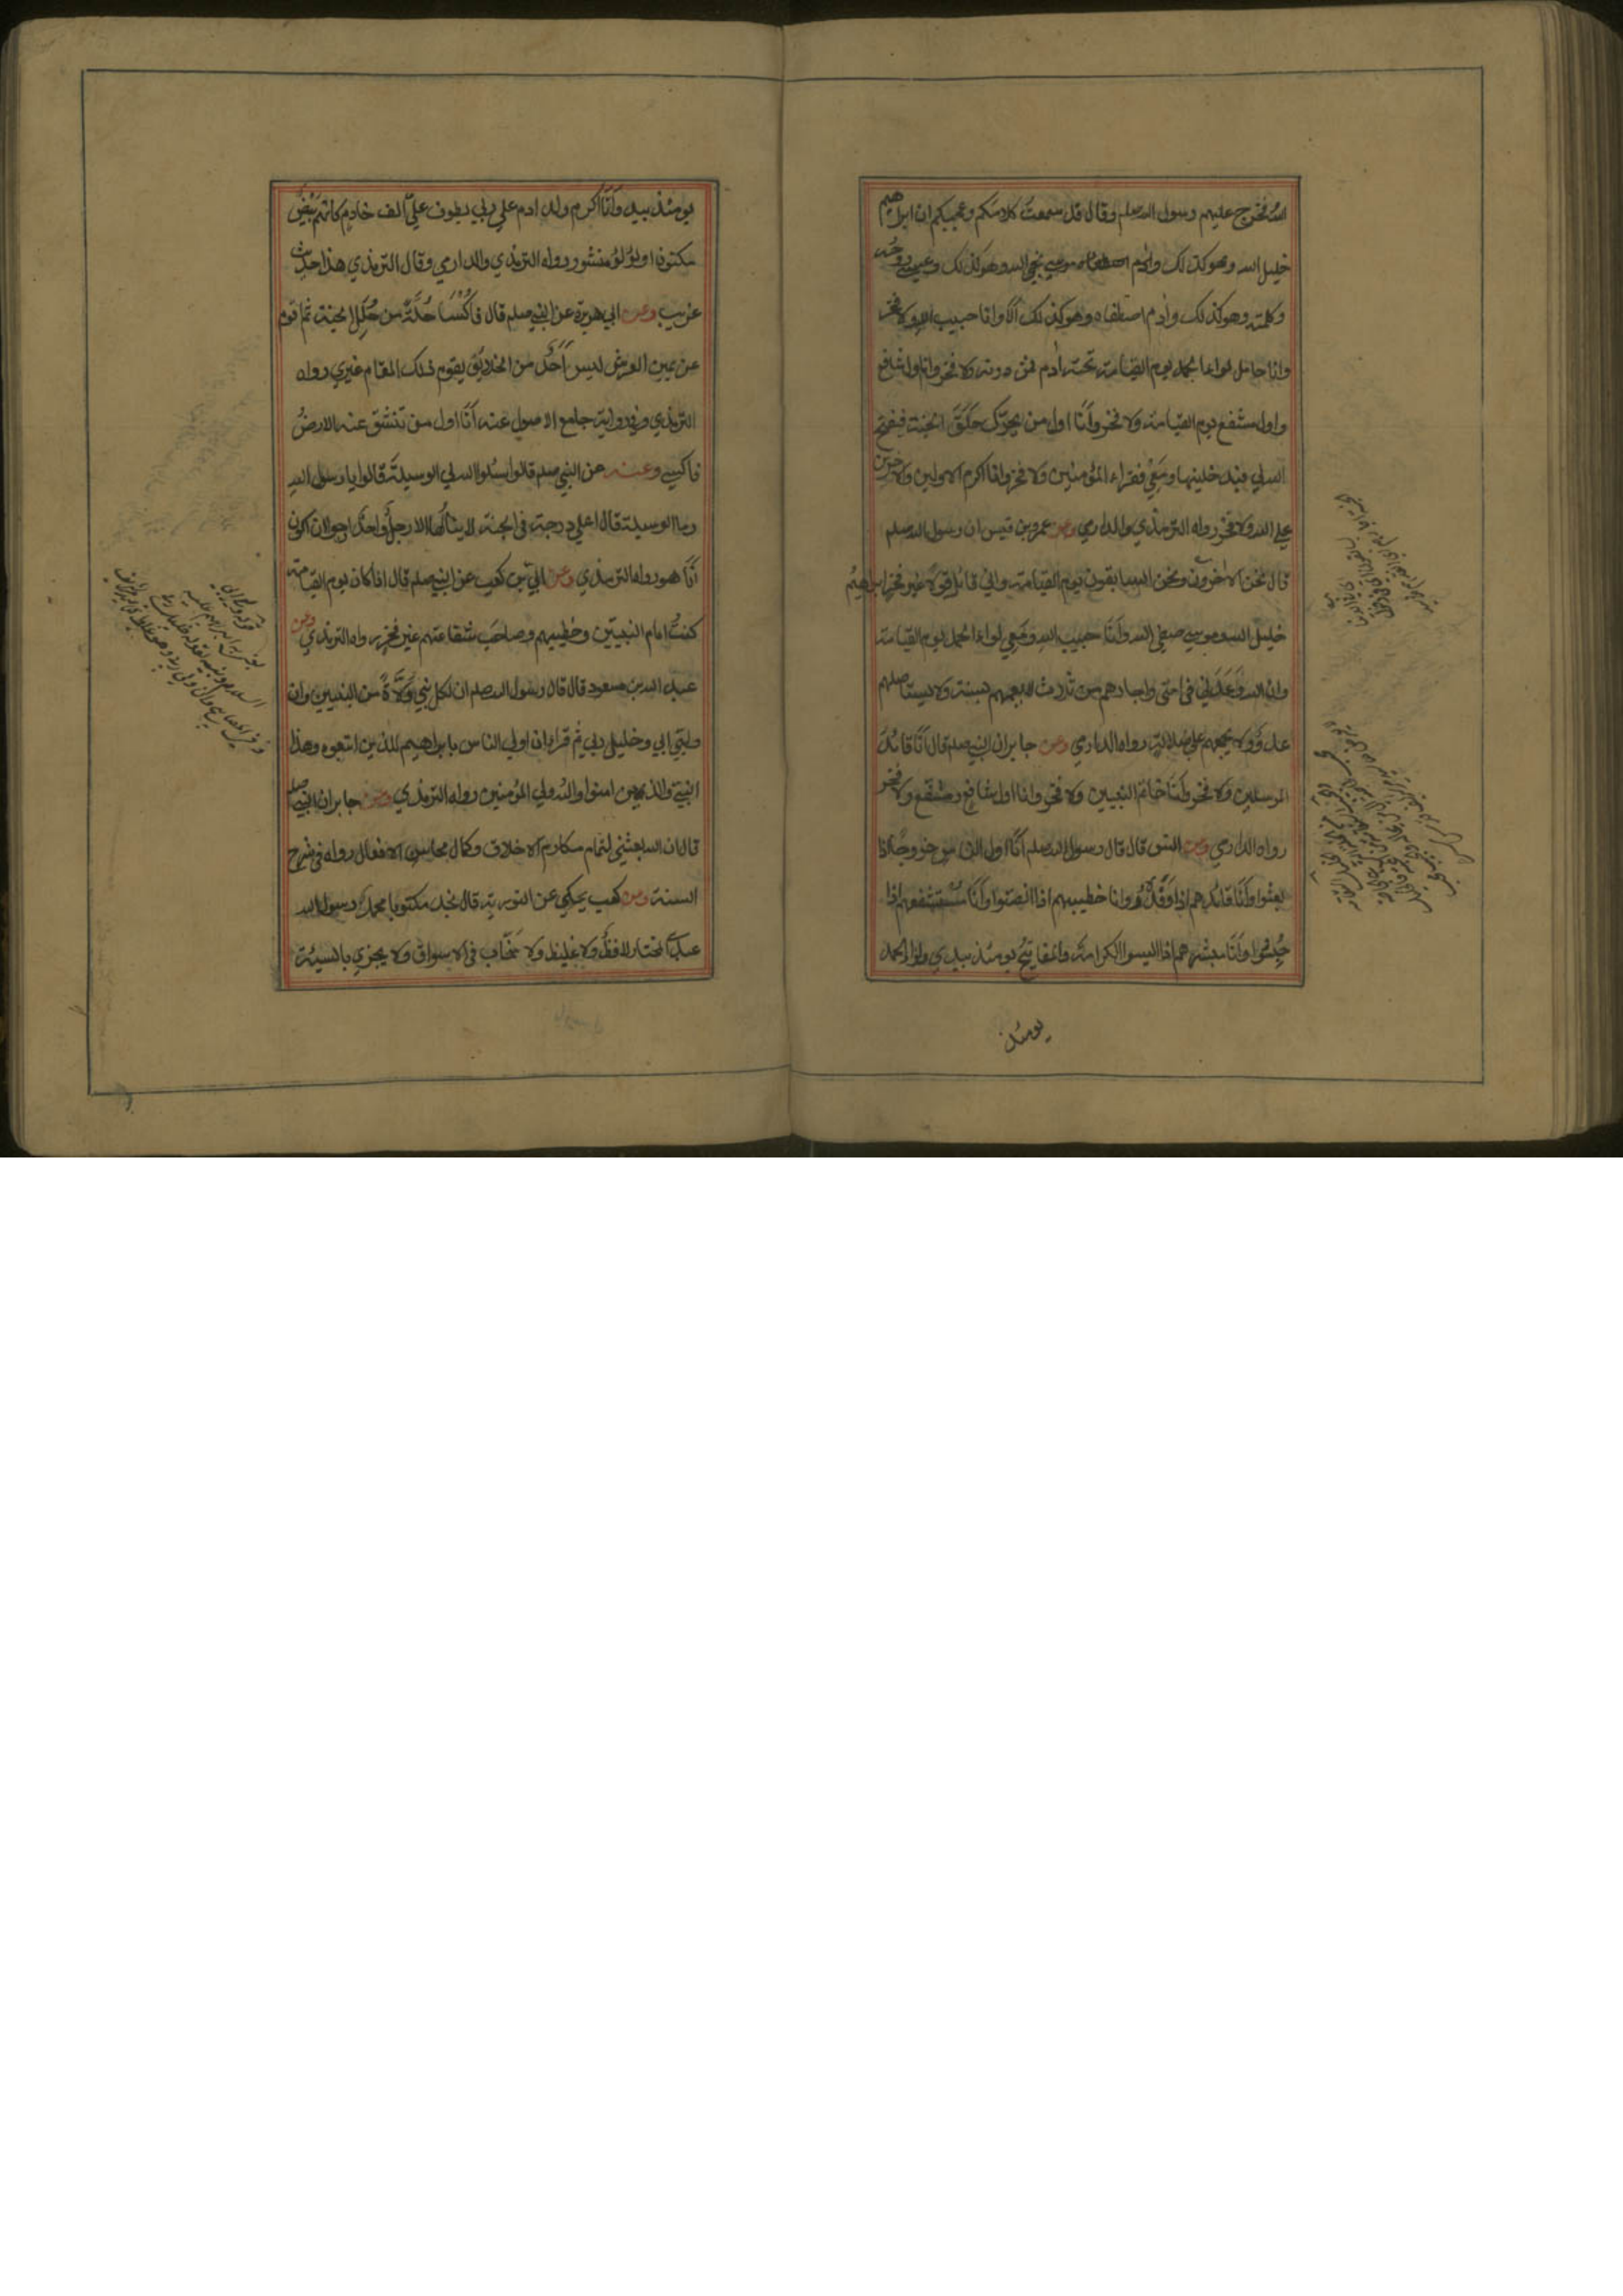 الله فخرج عليهم رسول الله صلعم وقال قد سمعت كلامكم وعجبكم ان ابراهيم
خليل الله وهو كذلك وموسي نجي الله وهو كذلك وعيسي روحه
وكلمته وهو كذلك وادم اصطفاه وهو كذلك الا وانا حبيب الله ولا فخر
وانا حامل لواء الحمد يوم القيامة تحته ادم فمن دونه ولا فخر وانا اول شافع
واول مشفع يوم القيامة ولا فخر وانا اول من يحرك حلق الجنة فيفتح
الله لي فيدخلنيها ومعي فقراء المؤمنين ولا فخر وانا اكرم الاولين والاخرين
علي الله ولا فخر رواه الترمذي والدارمي وعن عمرو بن قيس ان رسول الله صلعم
قال نحن الاخرون ونحن السابقون يوم القيامة واني قائل قولا غير فخر ابراهيم
خليل الله وموسي صفي الله وانا حبيب الله ومعي لواء الحمد يوم القيامة
وان الله وعدني في امتي واجارهم من ثلاث لا يعمهم بسنة ولا يستاصلهم
عدو ولا يجمعهم علي ضلالة رواه الدارمي وعن جابر ان النبي صلعم قال انا قائد
المرسلين ولا فخر وانا خاتم النبيين ولا فخر وانا اول شافع ومشفع ولا فخر
رواه الدارمي وعن انس قال قال رسول الله صلعم انا اول الناس خروجا اذا
بعثوا وانا قائدهم اذا وفدوا وانا خطيبهم اذا انصتوا وانا مستشفعهم اذا
حبسوا وانا مبشرهم اذا ايسوا الكرامة والمفاتيح يومئذ بيدي ولواء الحمد
يومئذ
يومئذ بيدي وانا اكرم ولد ادم علي ربي يطوف علي الف خادم كانهم بيض
مكنون او لؤلؤ منثور رواه الترمذي والدارمي وقال الترمذي هذا حديث
غريب وعن ابي هريرة عن النبي صلعم قال فاكسا حلة من حلل الجنة ثم اقوم
عن يمين العرش ليس احد من الخلايق يقوم ذلك المقام غيري رواه
الترمذي وفي رواية جامع الاصول عنه انا اول من تنشق عنه الارض
فاكسي وعنه عن النبي صلعم قال سلوا الله لي الوسيلة قالوا يا رسول الله
وما الوسيلة قال اعلي درجة في الجنة لا ينالها الا رجل واحد ارجوا ان اكون
انا هو رواه الترمذي وعن ابي بن كعب عن النبي صلعم قال اذا كان يوم القيامة
كنت امام النبيين وخطيبهم وصاحب شفاعتهم غير فخر رواه الترمذي وعن
عبد الله بن مسعود قال قال رسول الله صلعم ان لكل نبي ولاة من النبيين وان
وليي ابي وخليل ربي ثم قرا ان اولي الناس بابراهيم للذين اتبعوه وهذا
النبي والذين امنوا والله ولي المؤمنين رواه الترمذي وعن جابر ان النبي صلعم
قال ان الله بعثني لتمام مكارم الاخلاق وكمال محاسن الافعال رواه في شرح
السنة وعن كعب يحكي عن التورية قال نجد مكتوبا محمد رسول الله
عبدي المختار لا فظ ولا غليظ ولا سخاب في الاسواق ولا يجزي بالسيئة